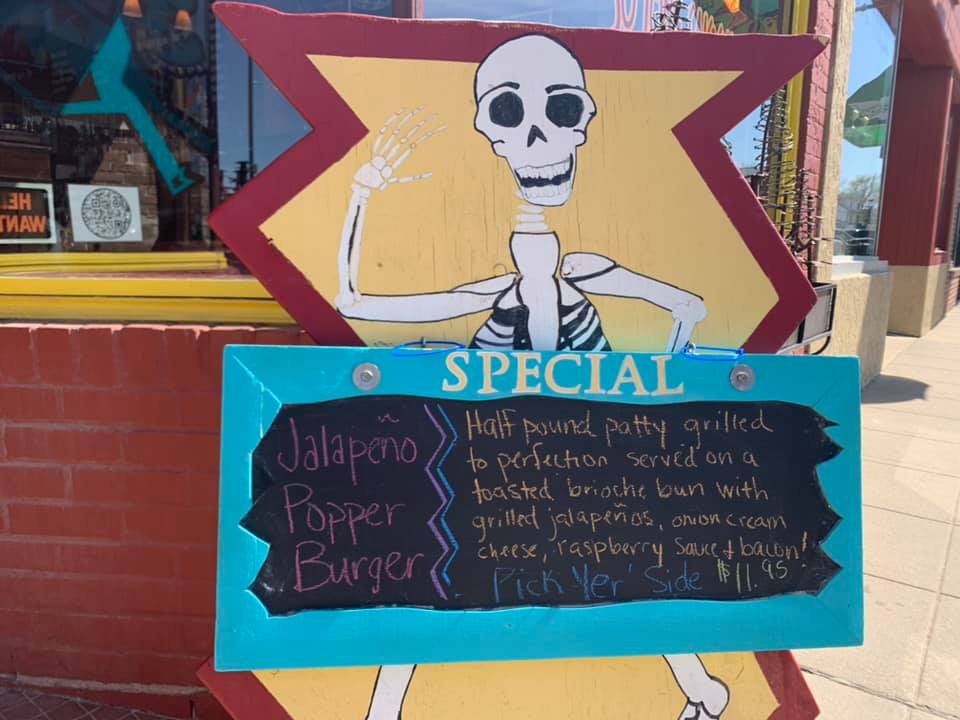 HELP
WANT
SPECIAL
Jalapeño
Popper
Burger
Half pound patty grilled
to perfection served on a
toasted brioche bun with
grilled jalapeños, onion cream
cheese, raspberry sauce & bacon!
Pick 'Yer' Side $11.95